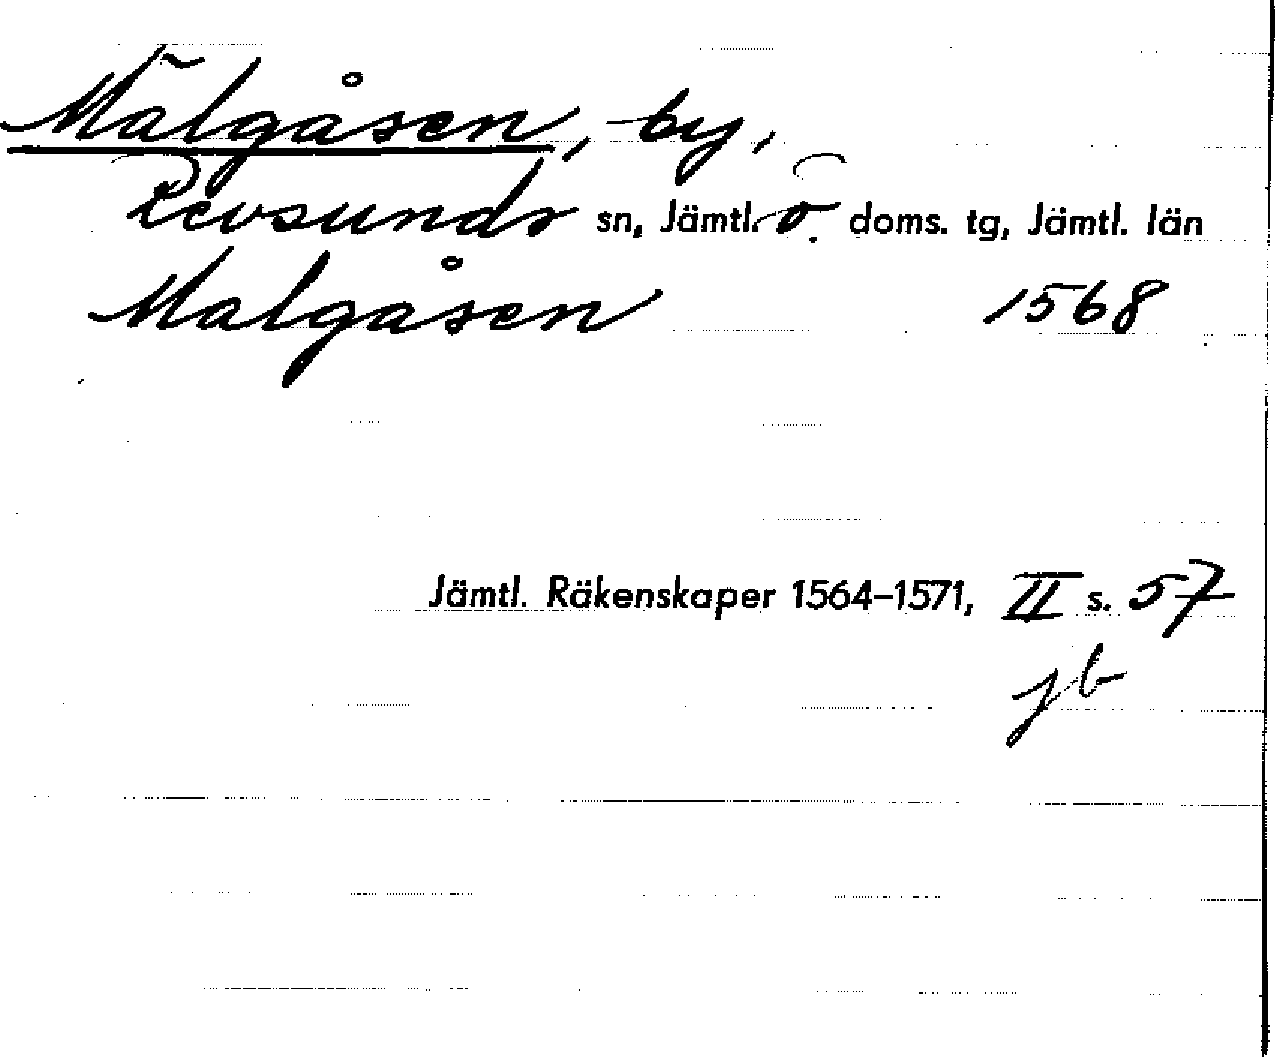 Mälgåsen, by,
Revsunds sn, Jämtl. ö. doms. tg, Jämtl. län
Malgåsen 1568
Jämtl. Räkenskaper 1564–1571, II s. 57
jb